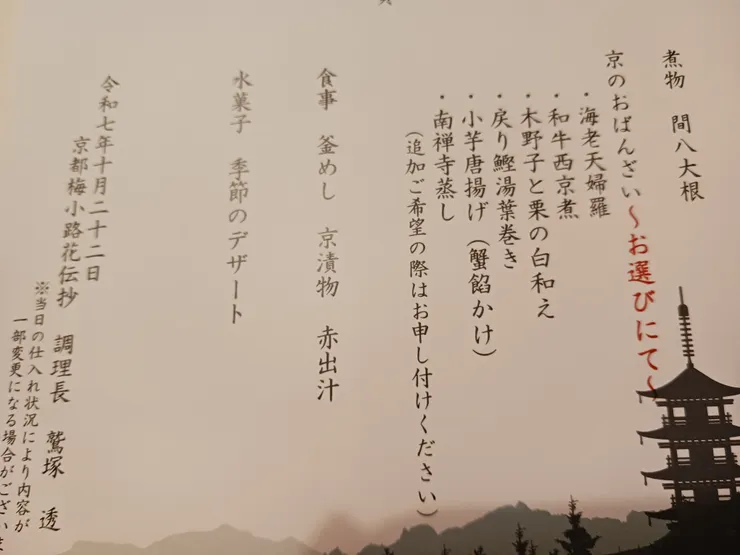 煮物　間八大根
京のおばんざい～お選びにて～
・海老天婦羅
・和牛西京煮
・木野子と栗の白和え
・戻り鰹湯葉巻き
・小芋唐揚げ（蟹餡かけ）
・南禅寺蒸し
（追加ご希望の際はお申し付けください）
食事　釜めし　京漬物　赤出汁
水菓子　季節のデザート
令和七年十月二十二日
京都梅小路花伝抄　調理長　鷲塚　透
※当日の仕入れ状況により内容が
一部変更になる場合がござい